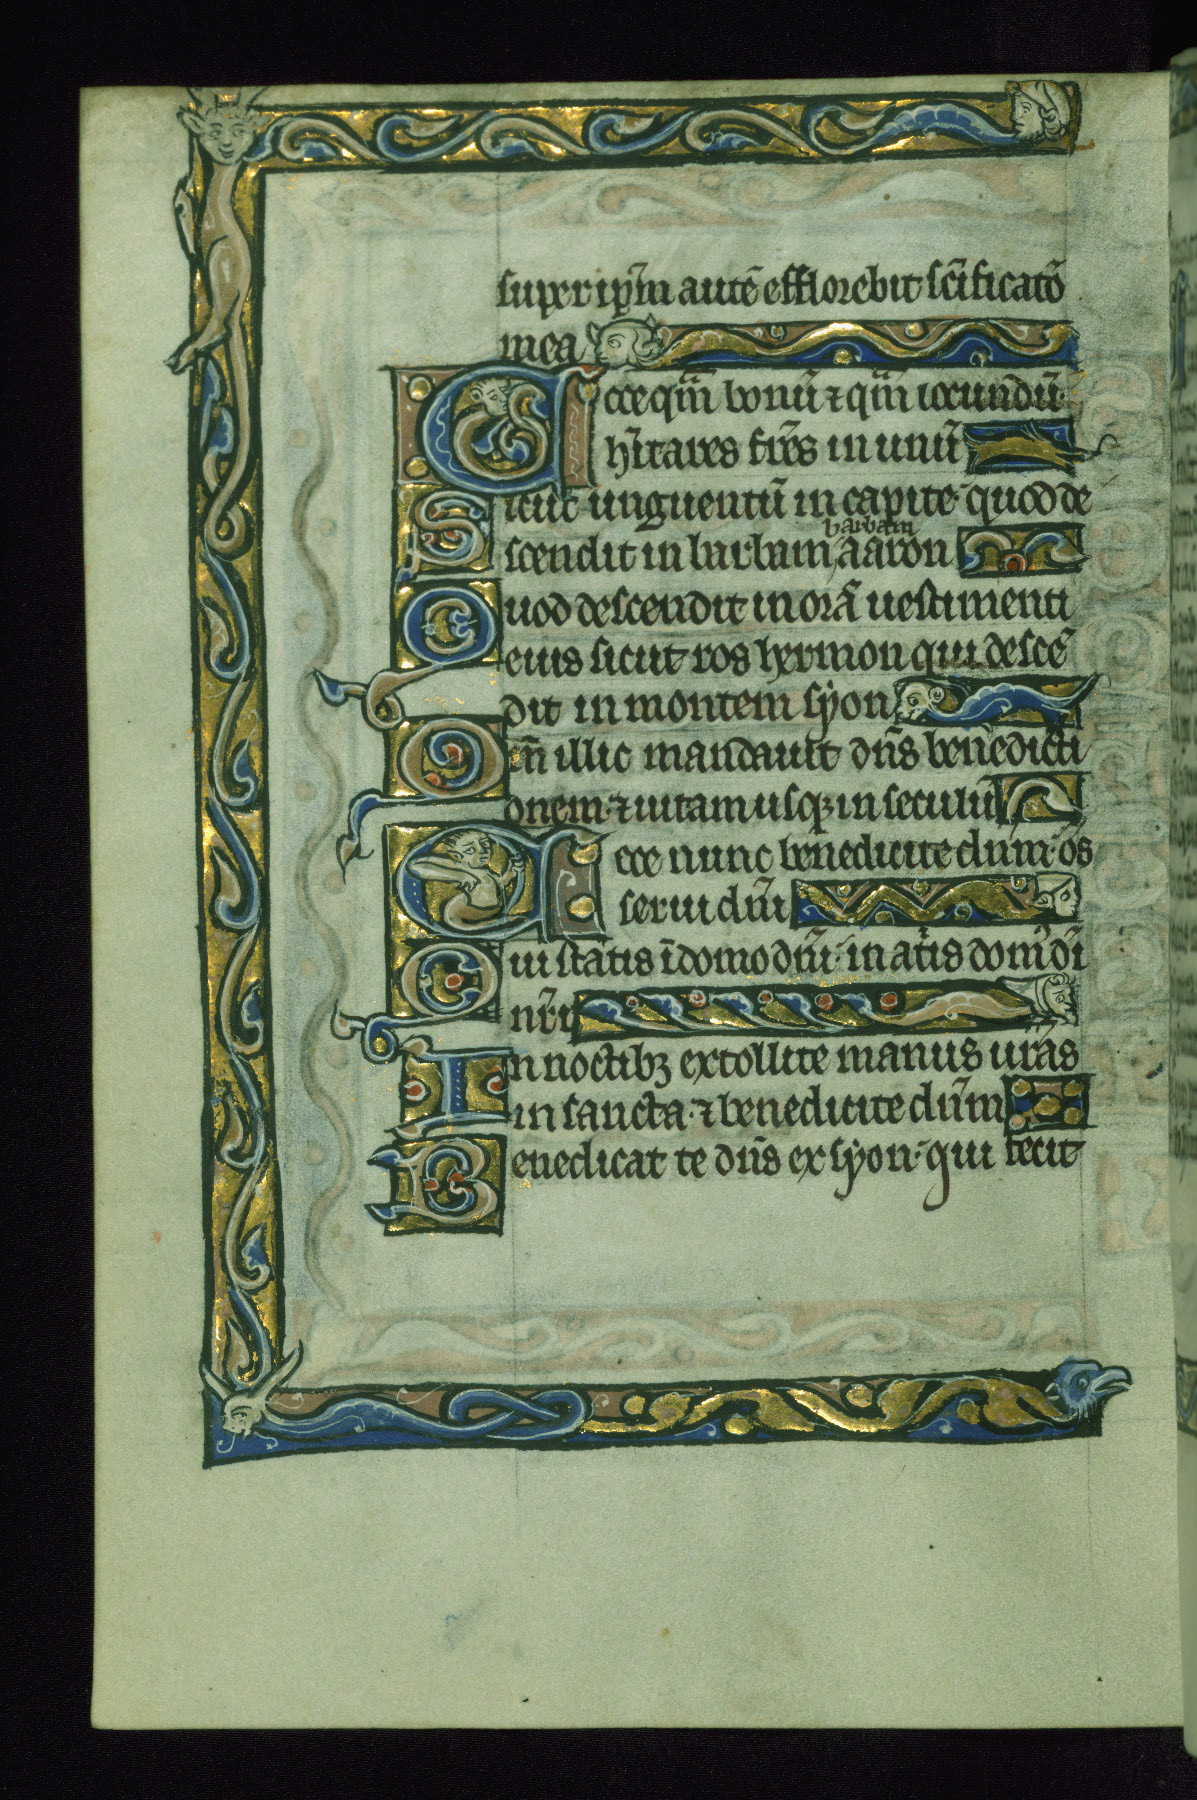 super ip̃m autẽ efflorebit sc̃ificatõ
mea
Ecce qm̃ bonũ ⁊ qm̃ iocundũ
hĩtares fr̃es in unũ
Sicut unguentũ in capite· quod de
barbam
scendit in barbam aaron
Quod descendit in orã uestimenti
eius sicut ros hermon qui descẽ
dit in montem syon
Qm̃ illic mandauit dñs benedicti
onem· ⁊ uitam usq; in seculũ
Ecce nunc benedicite dñm· õs
serui dñi
Qui statis ĩ domo dñi· in atĩs dom' dĩ
nr̃i
In noctibꝫ extollite manus ur̃as
in sancta· ⁊ benedicite dñm
Benedicat te dñs ex syon· qui fecit